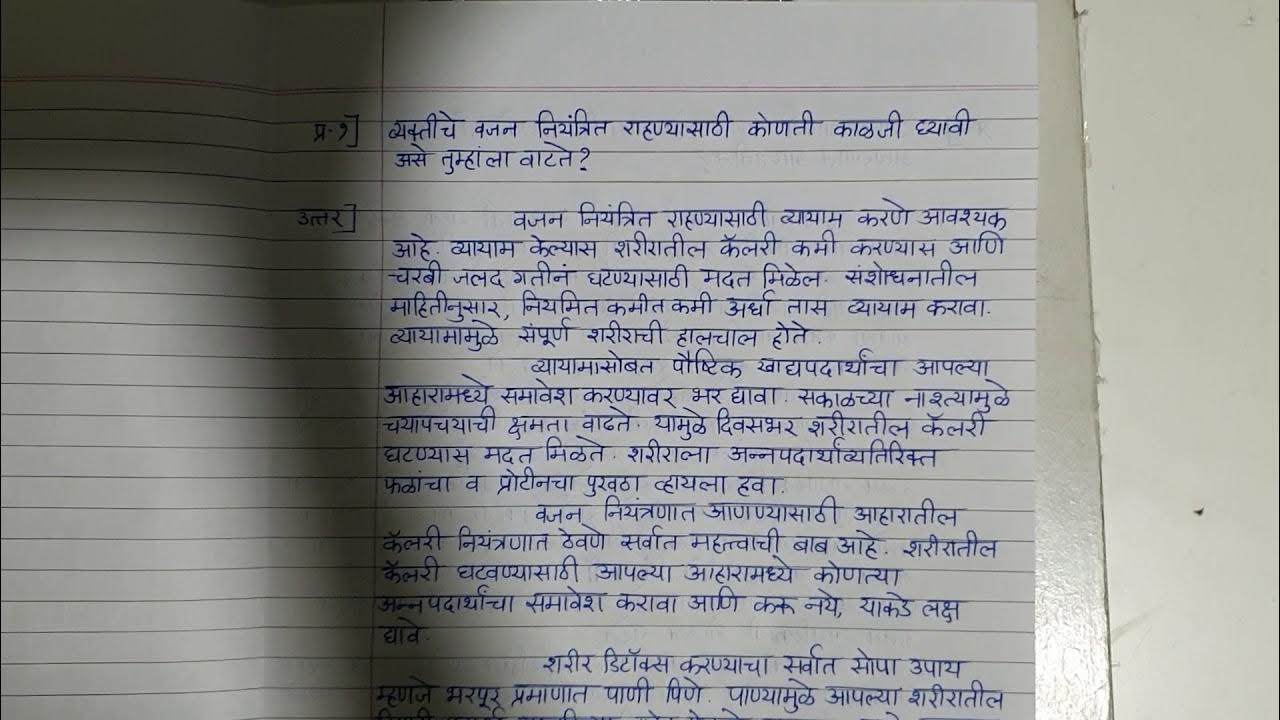 प्र-१] व्यक्तीचे वजन नियंत्रित राहण्यासाठी कोणती काळजी घ्यावी
असे तुम्हांला वाटते?
उत्तर] वजन नियंत्रित राहण्यासाठी व्यायाम करणे आवश्यक
आहे. व्यायाम केल्यास शरीरातील कॅलरी कमी करण्यास आणि
चरबी जलद गतीनं घटण्यासाठी मदत मिळेल. संशोधनातील
माहितीनुसार, नियमित कमीत कमी अर्धा तास व्यायाम करावा.
व्यायामामुळे संपूर्ण शरीराची हालचाल होते.
व्यायामासोबत पौष्टिक खाद्यपदार्थांचा आपल्या
आहारामध्ये समावेश करण्यावर भर द्यावा. सकाळच्या नाश्त्यामुळे
चयापचयाची क्षमता वाढते. यामुळे दिवसभर शरीरातील कॅलरी
घटण्यास मदत मिळते. शरीराला अन्नपदार्थांव्यतिरिक्त
फळांचा व प्रोटीनचा पुरवठा व्हायला हवा.
वजन नियंत्रणात आणण्यासाठी आहारातील
कॅलरी नियंत्रणात ठेवणे सर्वात महत्त्वाची बाब आहे. शरीरातील
कॅलरी घटवण्यासाठी आपल्या आहारामध्ये कोणत्या
अन्नपदार्थांचा समावेश करावा आणि करू नये, याकडे लक्ष
द्यावे.
शरीर डिटॉक्स करण्याचा सर्वात सोपा उपाय
म्हणजे भरपूर प्रमाणात पाणी पिणे. पाण्यामुळे आपल्या शरीरातील